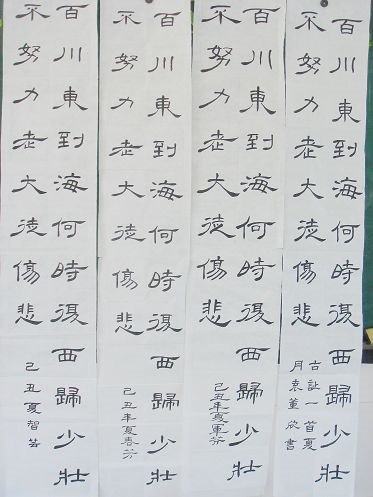 百川東到海何時復西歸少壯
不努力老大徒傷悲
古詩一首夏
月袁董欣書
百川東到海何時復西歸少壯
不努力老大徒傷悲
己丑年夏軍芬
百川東到海何時復西歸少壯
不努力老大徒傷悲
己丑年夏春芬
百川東到海何時復西歸少壯
不努力老大徒傷悲
己丑夏智芸